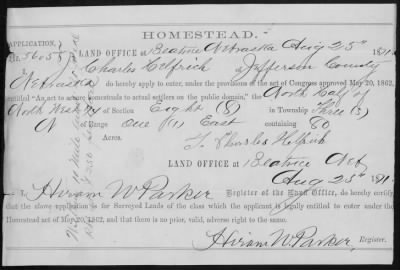 HOMESTEAD.
APPLICATION,
No. 5605
LAND OFFICE at Beatrice Nebraska Aug 25th 1871
I, Charles Helfrich of Jefferson County
Nebraska do hereby apply to enter, under the provisions of the act of Congress approved May 20, 1862,
entitled "An act to secure homesteads to actual settlers on the public domain," the North Half of
North West 1/4 of Section Eight (8) in Township Three (3)
N of Range One (1) East containing 80
Acres.
Charles Helfrich
LAND OFFICE at Beatrice Neb
Aug 25th 1871
I, Hiram W Parker Register of the Land Office, do hereby certify
that the above application is for Surveyed Lands of the class which the applicant is legally entitled to enter under the
Homestead act of May 20, 1862, and that there is no prior, valid, adverse right to the same.
Hiram W. Parker,
Register.